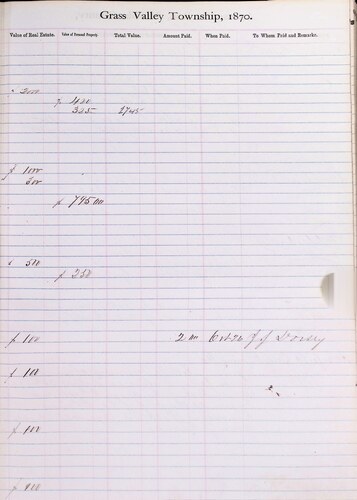 Grass Valley Township, 1870.
Value of Real Estate. Value of Personal Property Total Value. Amount Paid. When Paid. To Whom Paid and Remarks.
2000
400
345 2745
1000
500
795 00
500
250
100 2 00 Oct 26 J J Dorsey
100
100